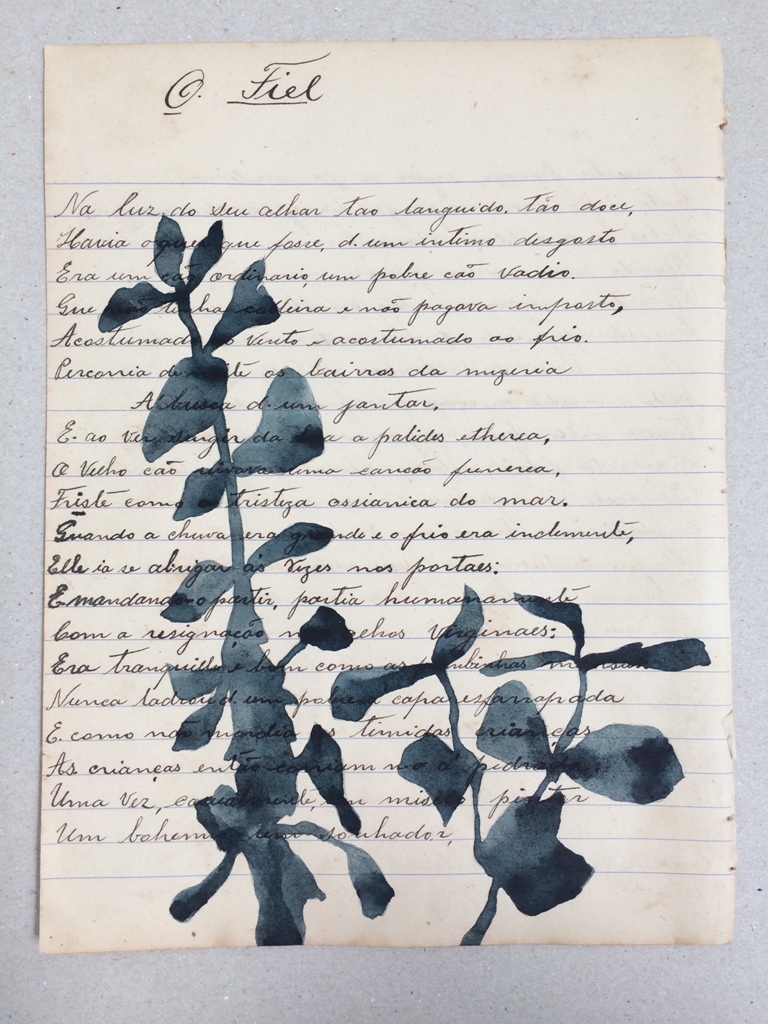 O. Fiel
Na luz do seu olhar tao languido, tão doce,
Havia o quer que fosse, d. um intimo desgosto
Era um cão ordinario, um pobre cão vadio.
Que não tinha colleira e não pagava imposto,
Acostumado ao vento e acostumado ao frio.
Percorria de noite os bairros da mizeria
A busca d. um jantar,
E. ao ver surgir da lua a palides etherea,
O velho cão uivava uma canção funerea,
Triste como a tristeza ossianica do mar.
Quando a chuva era grande e o frio era inclemente,
Elle ia se abrigar ás vezes nos portaes;
E mandando-o partir, partia humanamente
Com a resignação nos olhos virginaes;
Era tranquillo e bom como as pombinhas mansas
Nunca ladrou d. um pobre a capa esfarrapada
E. como não mordia as timidas crianças
As crianças então corriam n-o á pedrada.
Uma vez, casualmente, um misero pintor
Um bohemio, um sonhador,